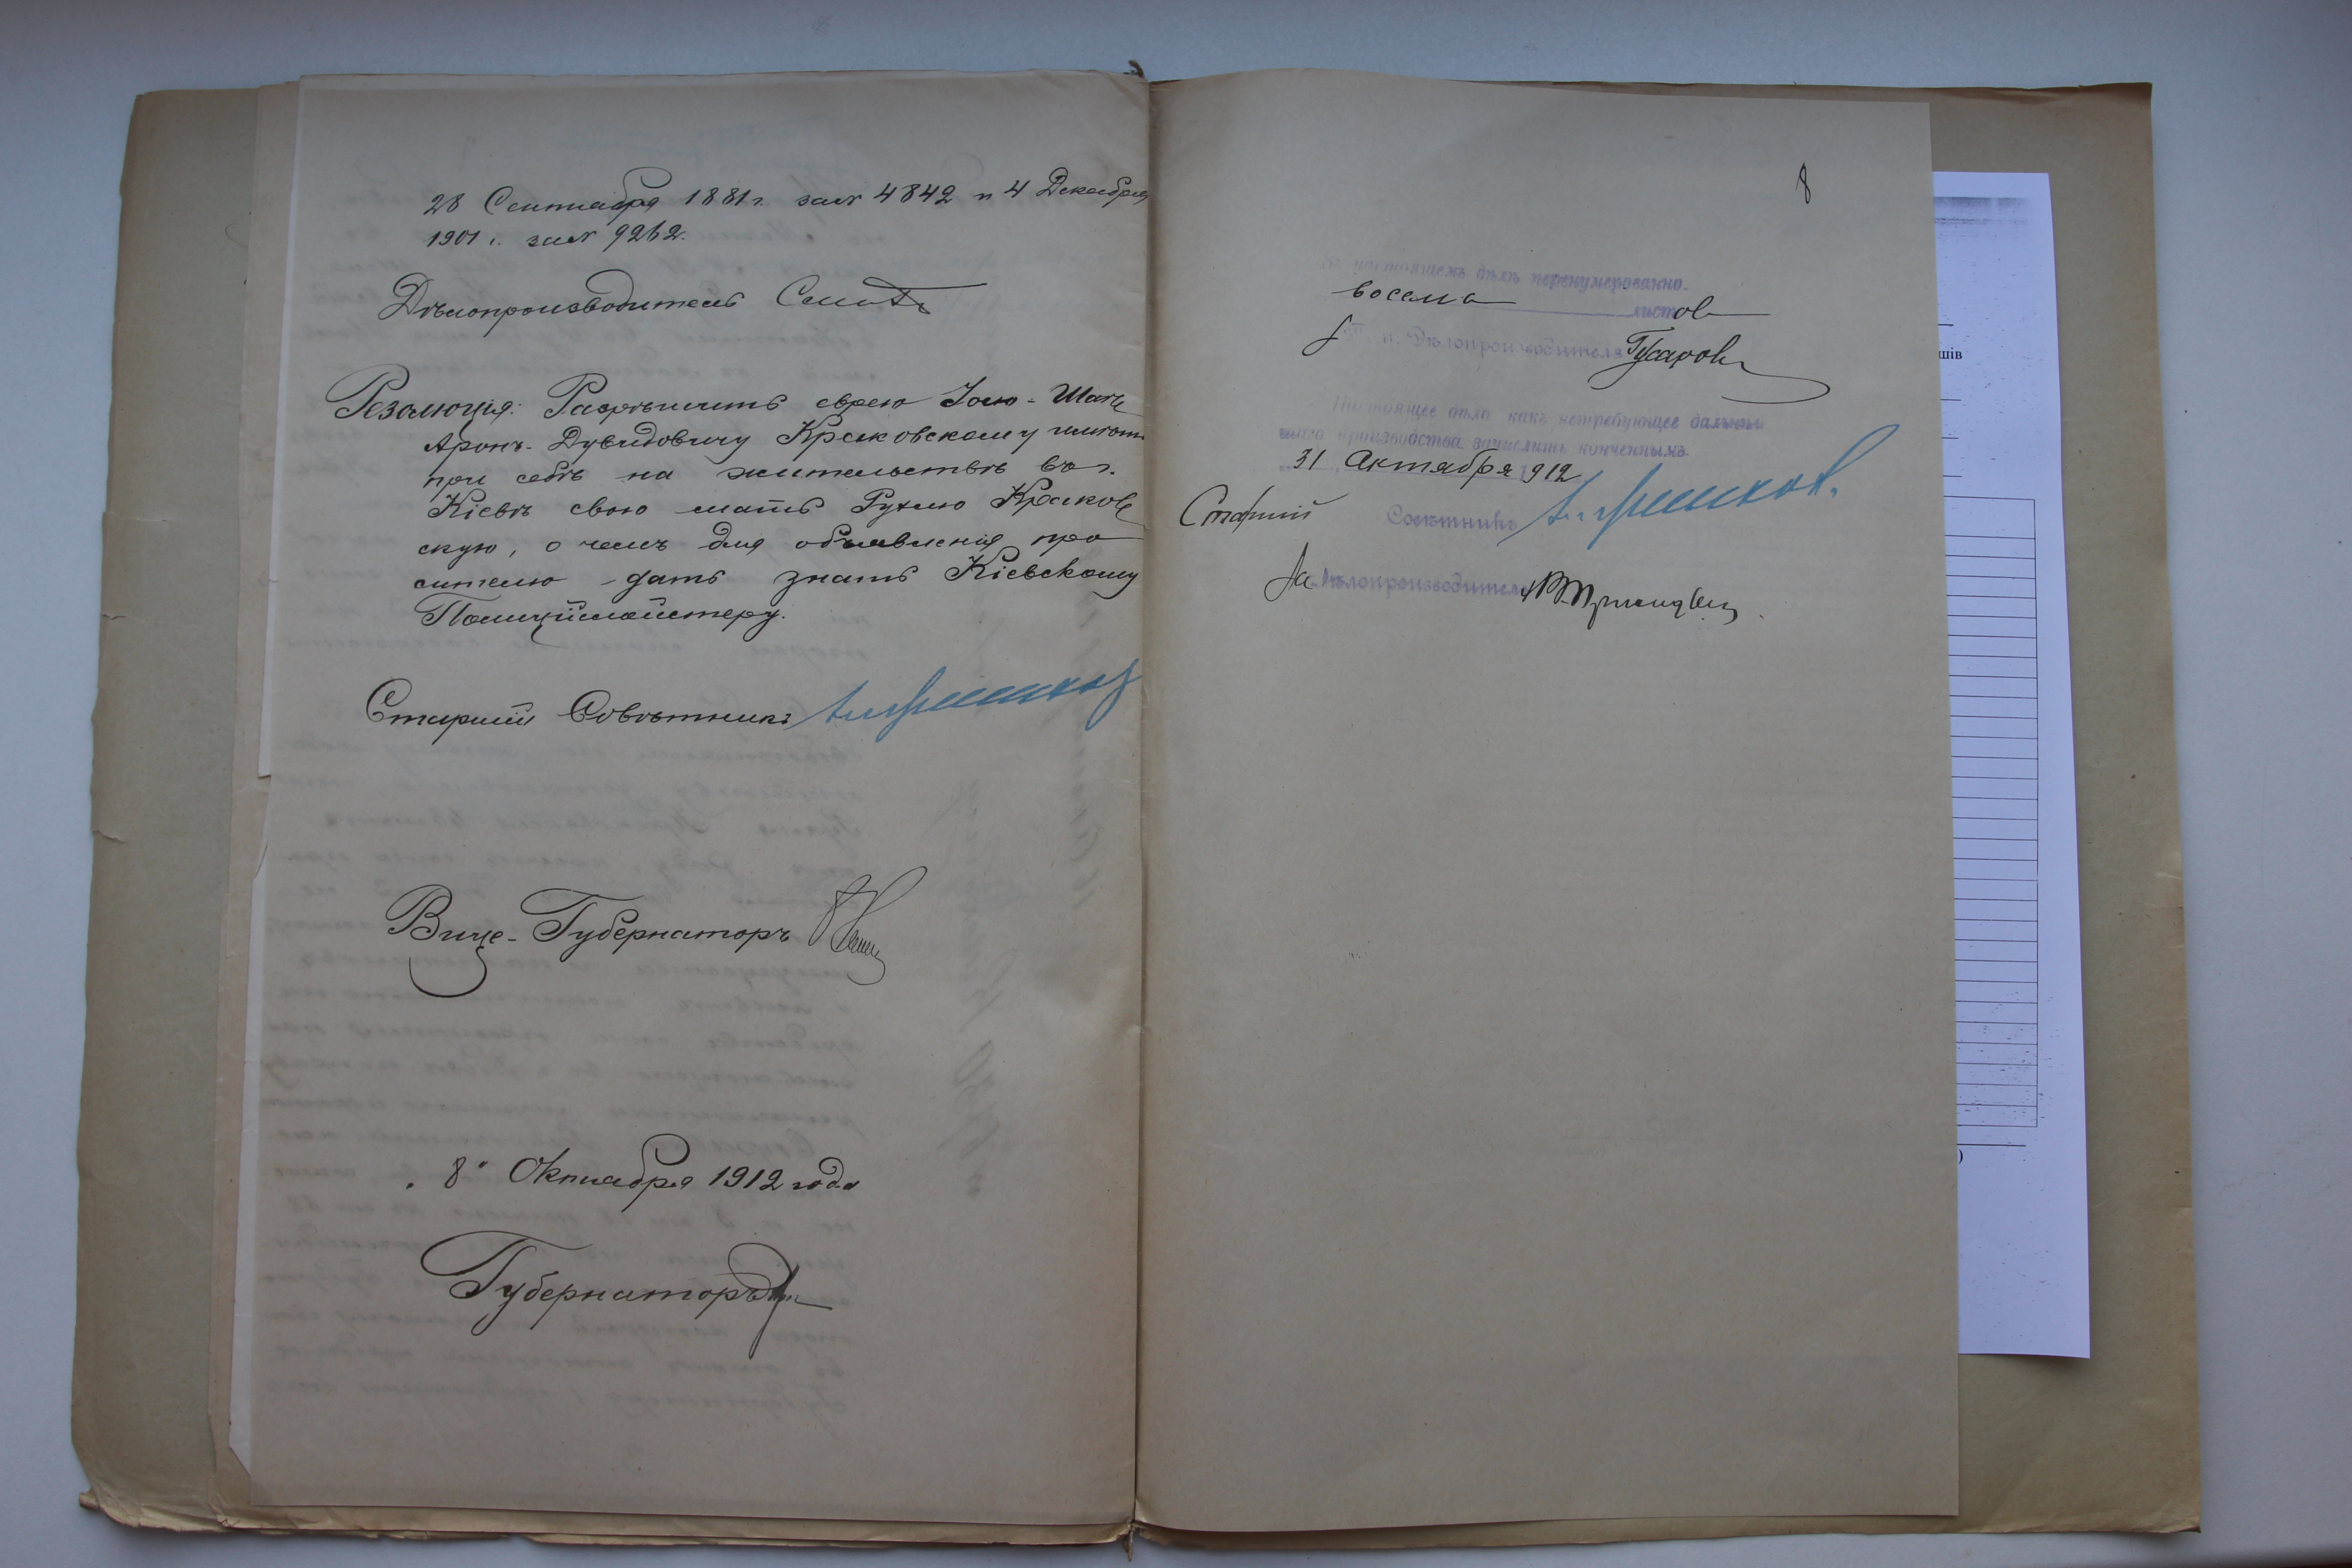 28 Сентября 1881 г. за № 4842 и 4 Декабря
1901 г. за № 9262.
Дѣлопроизводитель
Резолюція: Разрѣшить еврею
Аронъ-Дувидовичу Краковскому имѣть
при себѣ на жительствѣ въ г.
Кіевѣ свою мать Рухлю Краков
скую, о чемъ для объявленія про
сителю дать знать Кіевскому
Полиціймейстеру.
Старшій Совѣтникъ
Вице-Губернаторъ
"8" Октября 1912 года
Губернаторъ
8
Въ настоящемъ дѣлѣ перенумеровано.
восемь листовъ
Дѣлопроизводителя Гусаровъ
Настоящее дѣло какъ нетребующее дальнѣй
шаго производства зачислить конченнымъ.
31 Октября 1912
Старшій Совѣтникъ
За Дѣлопроизводителя
шів
)